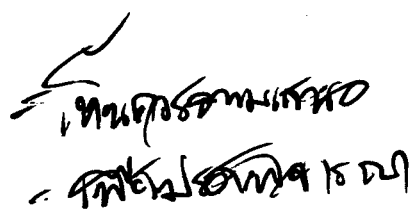 - เห็นควรตามเสนอ
- เพื่อโปรดพิจารณา